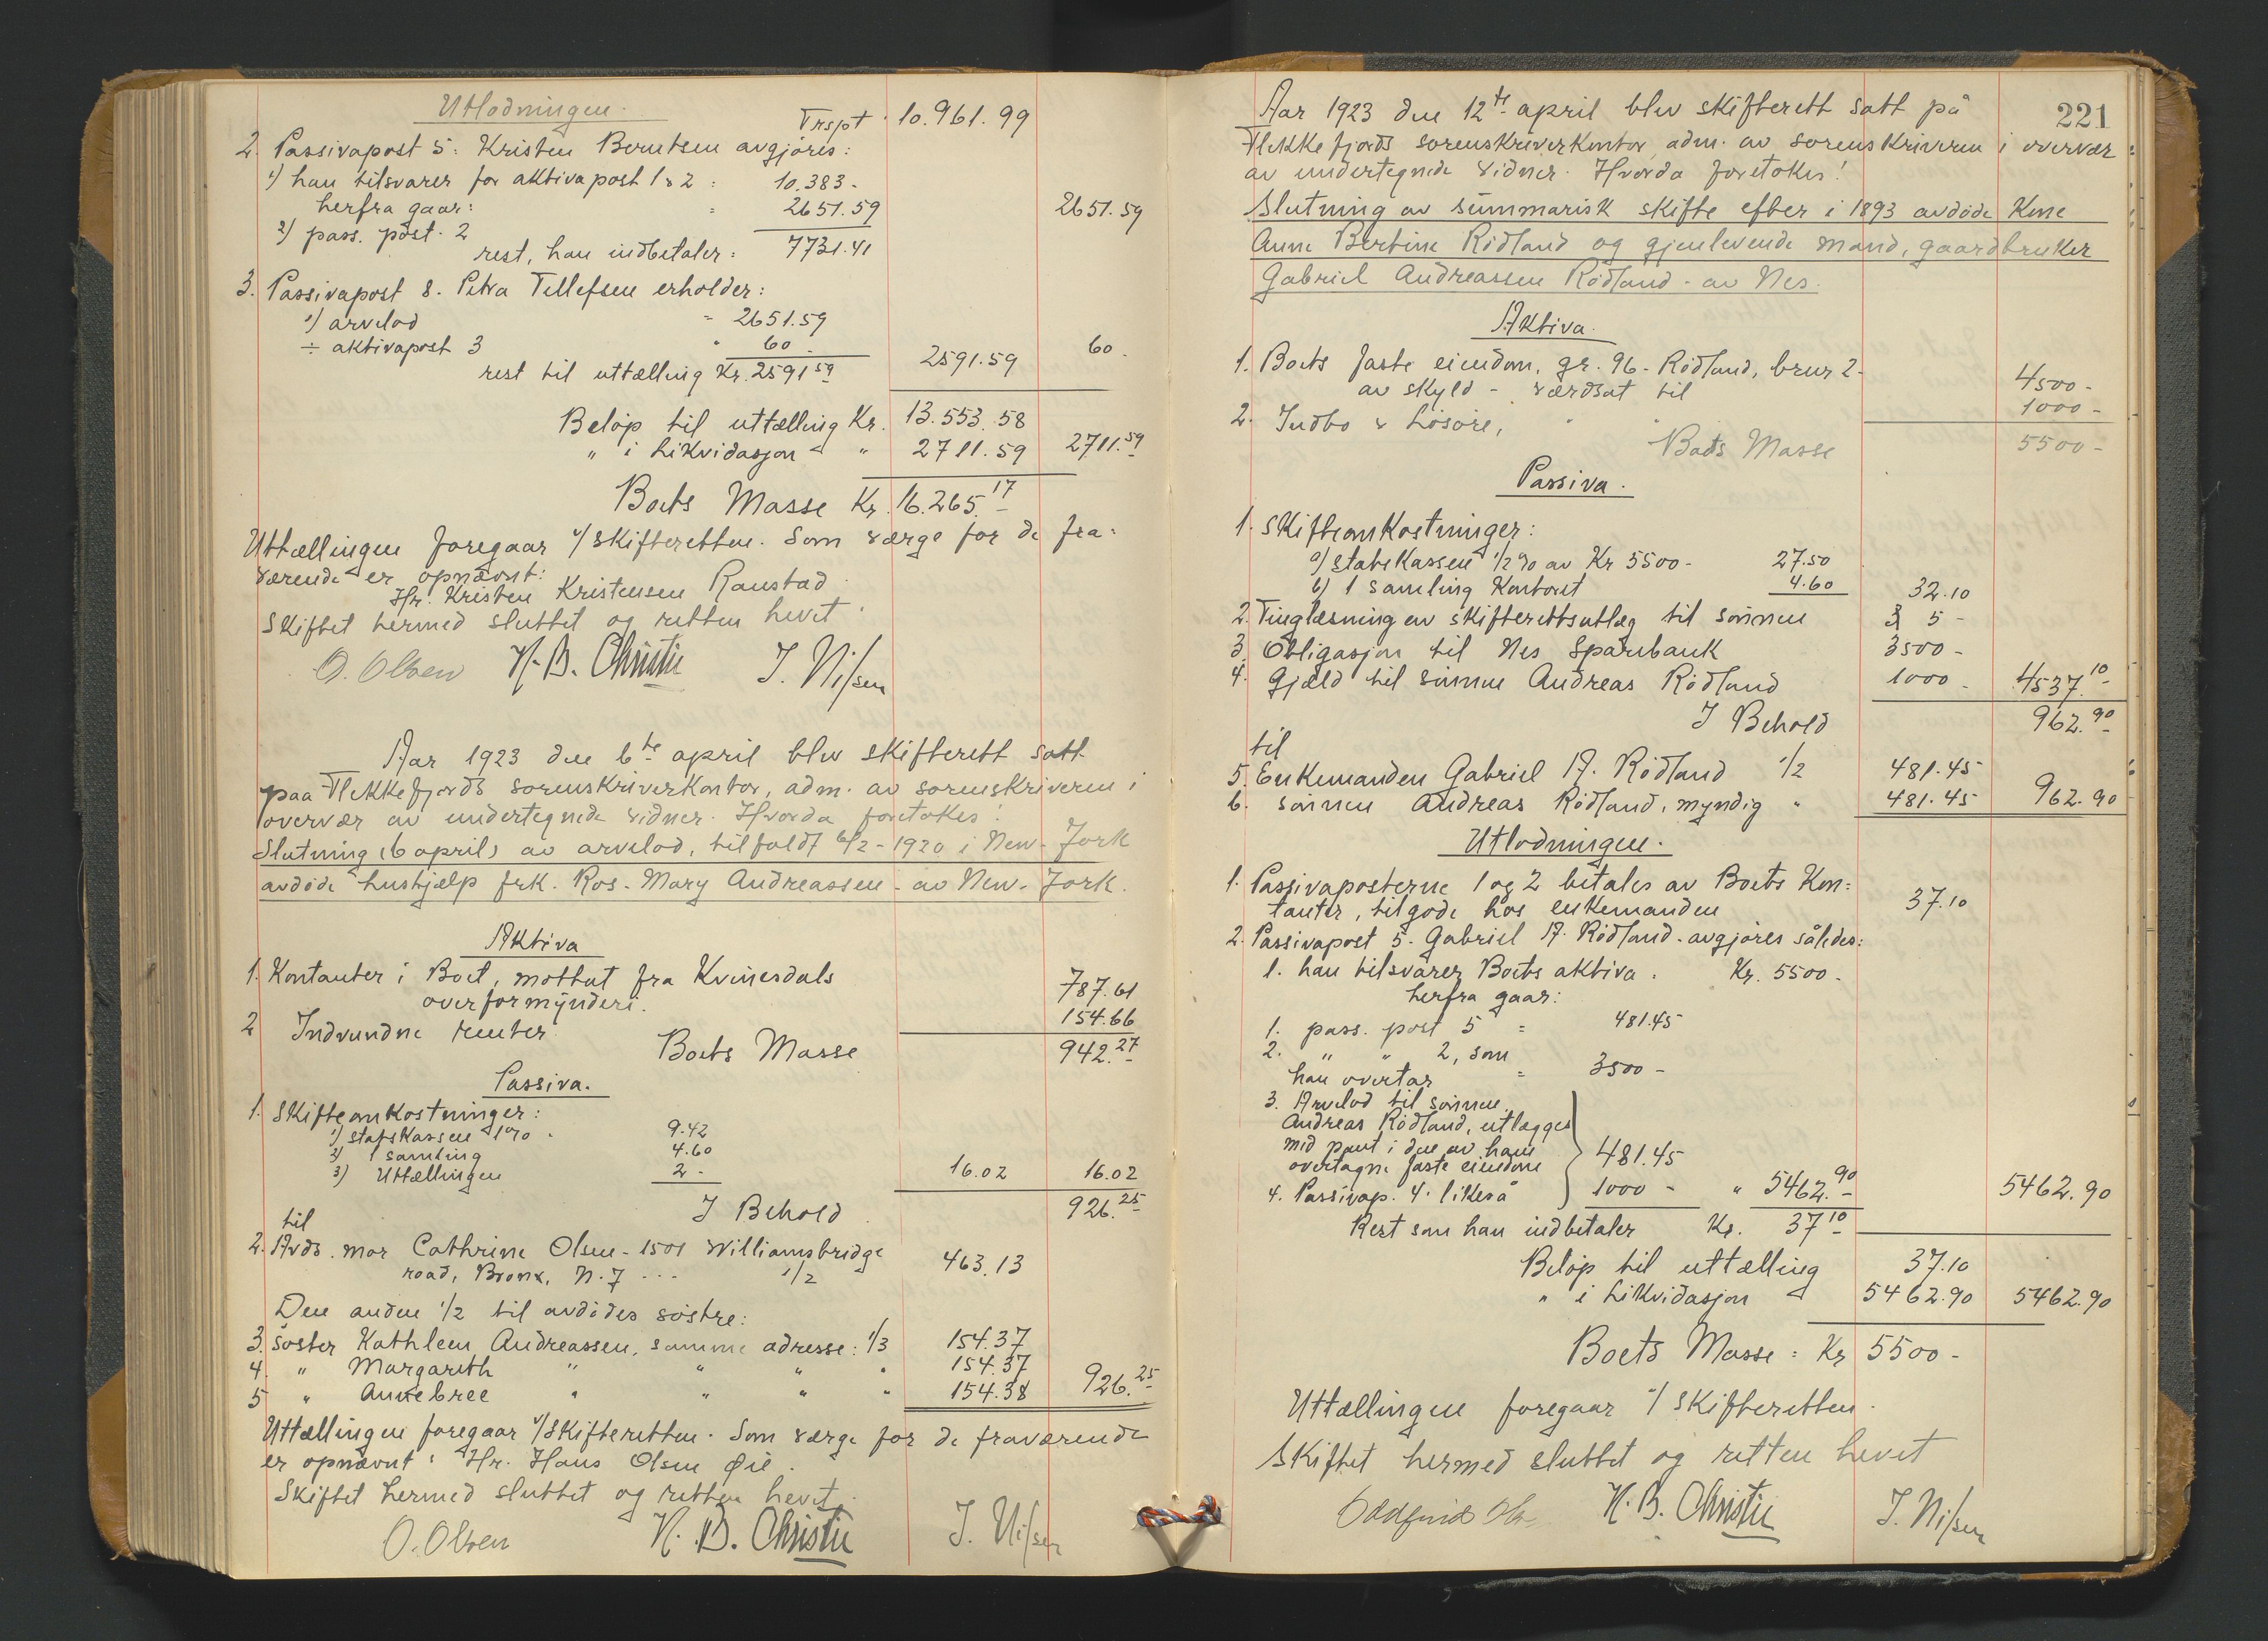 Utlodningen.
Trspt. 10.961.99
2. Passivapost 5: Kristen Berntsen avgjøres:
1) han tilsvarer for aktivapost 1 & 2 : 10.383-
herfra gaar:
2) pass. post. 2 = 2651.59 2651.59
rest, han indbetaler: 7731.41
3. Passivapost 8. Petra Tellefsen erholder:
1) arvelod = 2651.59
÷ aktivapost 3 " 60- 60-
rest til uttælling Kr. 2591 59 2591.59
Beløp til uttælling Kr. 13.553.58
" i Likvidasjon " 2711.59 2711.59
Boets Masse Kr. 16.265.17
Uttællingen foregaar v/skifteretten. Som værge for de fra-
værende er opnævnt:
Hr. Kristen Kristensen Raustad.
Skiftet hermed sluttet og retten hevet.
O. Olsen N. B. Christie J. Nilsen
Aar 1923 den 6te april blev skifterett satt
paa Flekkefjords sorenskriverkontor, adm. av sorenskriveren i
overvær av undertegnede vidner. Hvorda foretokes:
Slutning (6 april) av arvelod, tilfaldt 6/2-1920 i New-York
avdøde hushjælp frk. Ros-Mary Andreassen - av New-York.
Aktiva
1. Kontanter i Boet, mottat fra Kvinesdals
overformynderi. 787.61
2 Indvundne renter 154.66
Boets Masse 942.27
Passiva.
1. Skifteomkostninger:
1) statskassen 1% - 9.42
2) 1 samling 4.60
3) Uttællingen 2- 16.02 16.02
I Behold 926.25
til
2. Avds. mor Cathrine Olsen - 1501 Williamsbridge
road, Bronx, N.Y ... 1/2 463.13
Den anden 1/2 til avdødes søstre:
3. søster Kathleen Andreassen, samme adresse: 1/3 154.37
4. " Margareth " " " " 154.37
5 " Annebree " " " " 154.38 926.25
Uttællingen foregaar v/skifteretten. Som værge for de fraværende
er opnævnt: Hr. Hans Olsen Øie.
Skiftet hermed sluttet og retten hevet.
O. Olsen N. B. Christie J. Nilsen
221
Aar 1923 den 12te april blev skifterett satt på
Flekkefjords sorenskriverkontor, adm. av sorenskriveren i overvær
av undertegnede vidner. Hvorda foretokes:
Slutning av summarisk skifte efter i 1893 avdøde Kone
Anne Bertine Rødland og gjenlevende mand, gaardbruker
Gabriel Andreassen Rødland - av Nes.
Aktiva.
1. Boets faste eiendom, gr. 96 - Rødland, brnr 2-
av skyld - værdsat til 4500-
2. Indbo & Løsøre, " " 1000-
Boets Masse 5500-
Passiva.
1. Skifteomkostninger:
a) statskassen 1/2 % av Kr 5500- 27.50
b) 1 samling Kontoret 4.60 32.10
2. Tinglæsning av skifterettsutlæg til sønnen 5-
3. Obligasjon til Nes Sparebank 3500-
4. Gjæld til sønnen Andreas Rødland 1000- 4537.10
I Behold 962.90
til
5. Enkemanden Gabriel A. Rødland 1/2 481.45
6. sønnen Andreas Rødland, myndig " 481.45 962.90
Utlodningen.
1. Passivaposterne 1 og 2 betales av Boets Kon-
tanter, tilgode hos enkemanden 37.10
2. Passivapost 5. Gabriel A. Rødland. avgjøres således:
1. han tilsvarer Boets aktiva. Kr. 5500-
herfra gaar:
1. pass. post 5 = 481.45
2. " " 2, som
han overtar = 3500-
3. Arvelod til sønnen
Andreas Rødland, utlægges
med pant i den av ham
overtagne faste eiendom 481.45
4. Passivap. 4. likeså 1000- " 5462.90 5462.90
Rest som han indbetaler Kr. 37 10
Beløp til uttælling 37.10
" i Likvidasjon 5462.90 5462.90
Boets Masse = Kr 5500-
Uttællingen foregaar v/ skifteretten.
Skiftet hermed sluttet og retten hevet
N. B. Christie J. Nilsen